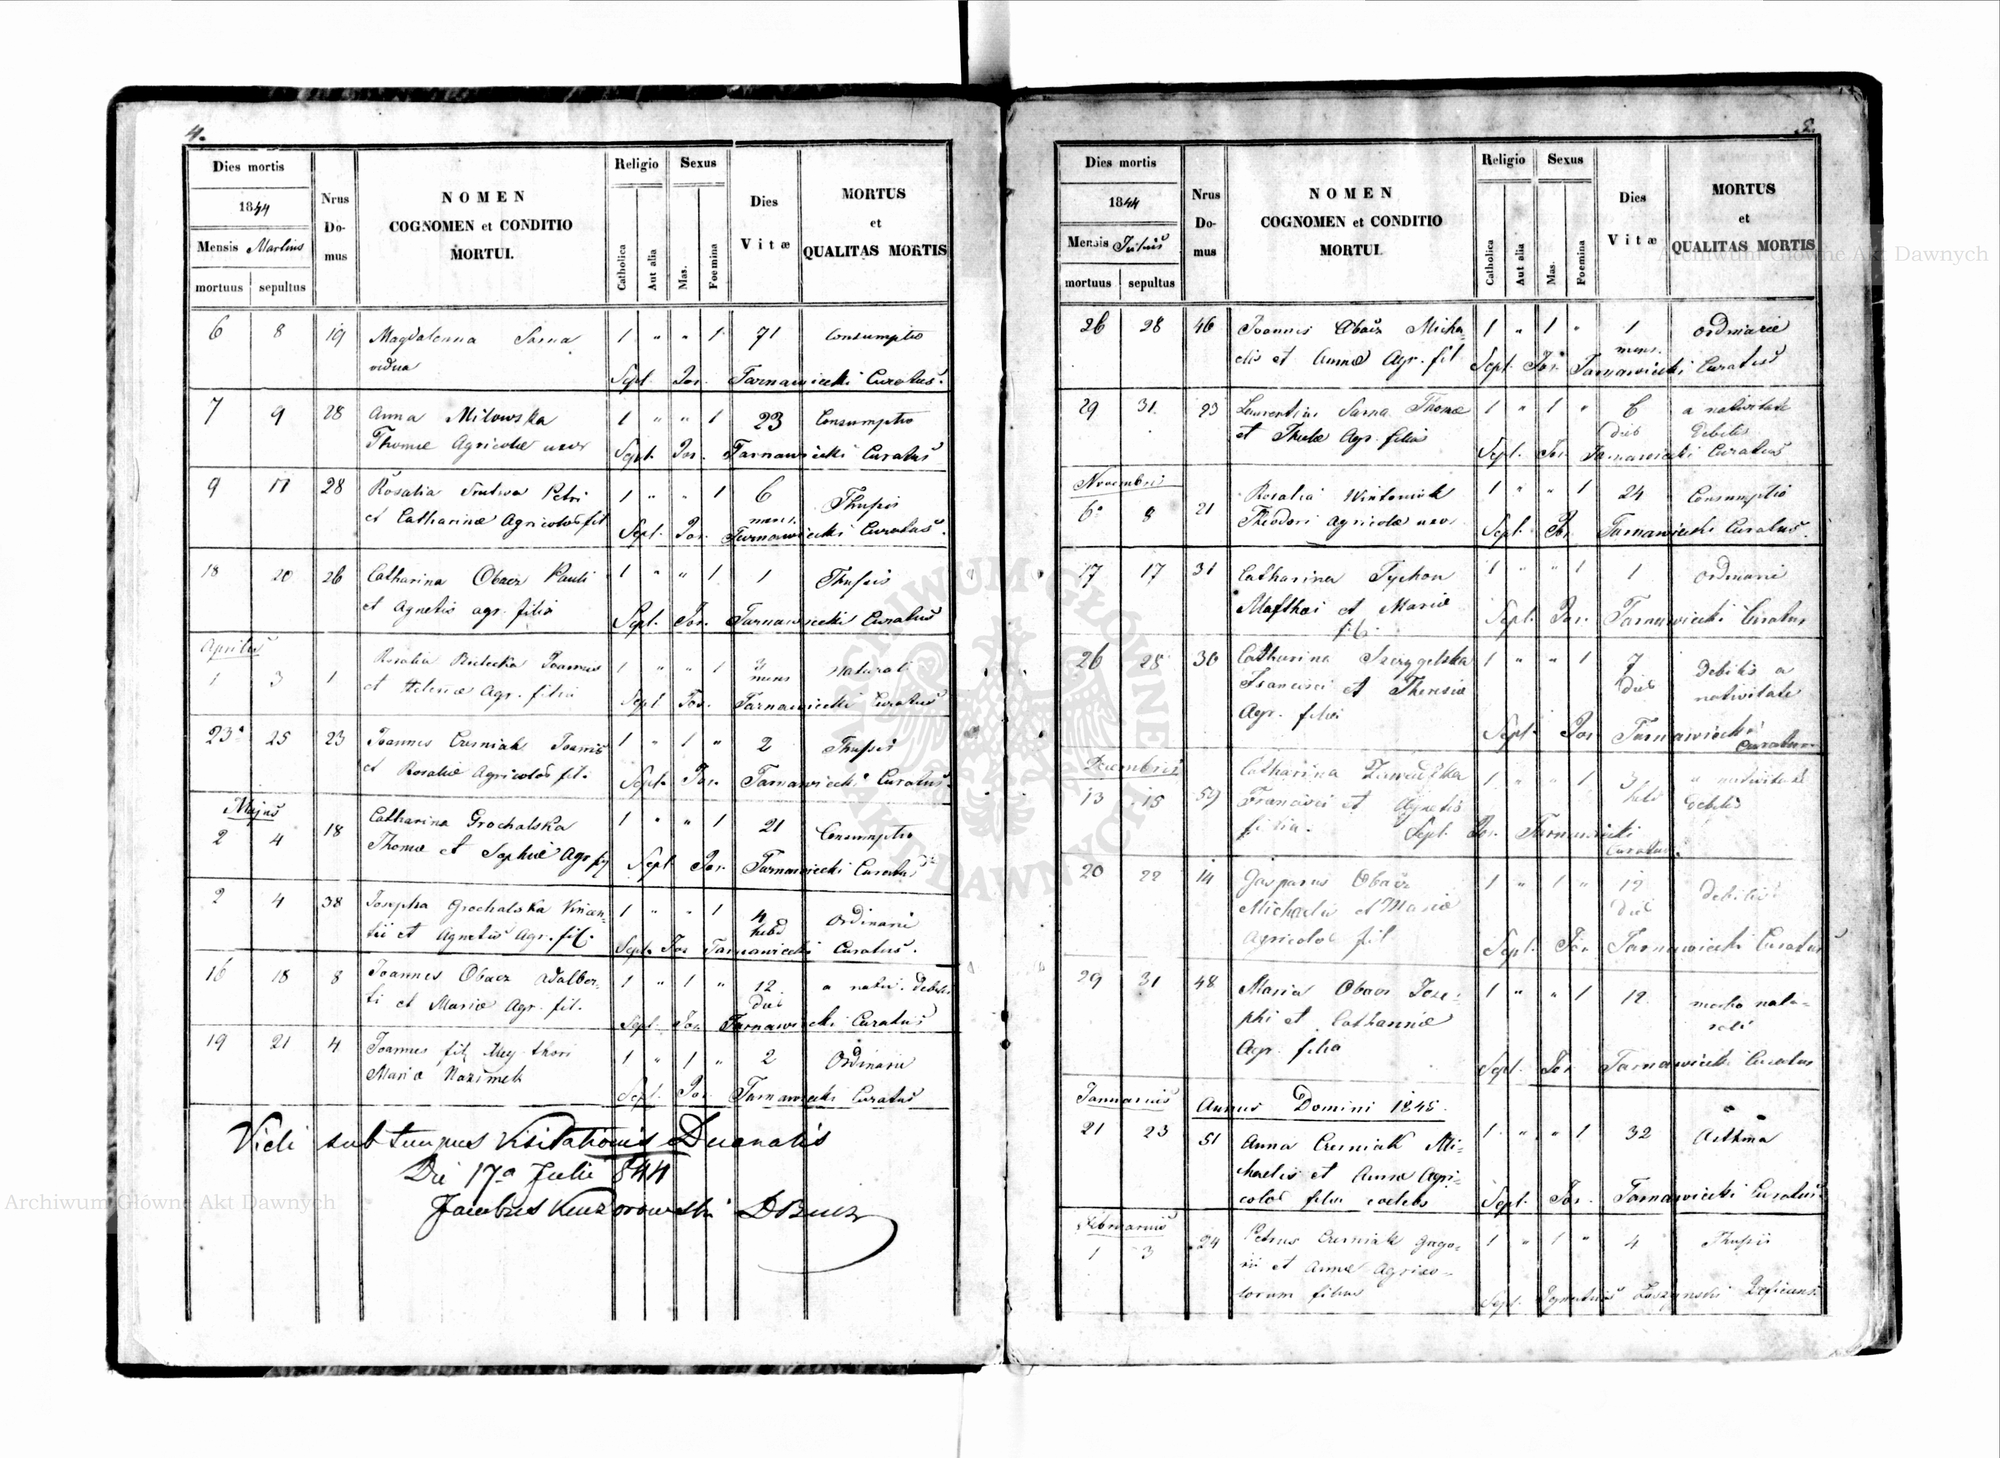 4.
Dies mortis
1844
Mensis Martius
mortuus sepultus
Nrus Do- mus
NOMEN
COGNOMEN et CONDITIO
MORTUI.
Religio
Catholica Aut alia
Sexus
Mas. Foemina
Dies
Vitæ
MORTUS
et
QUALITAS MORTIS
6 8 19 Magdalenna Sarna 1 " " 1 71 Consumptio
Sept. Jos. Tarnawiecki Curatus.
7 9 28 Anna Milowska 1 " " 1 23 Consumptio
Thomæ Agricolæ uxor Sept. Jos. Tarnawiecki Curatus
9 11 28 Rosalia Petri 1 " " 1 6 Thysis
et Catharinæ Agricolos fil mens.
Sept. Jos. Tarnawiecki Curatus.
18 20 26 Catharina Obacz Pauli 1 " " 1 1 Thysis
et Agnetis agr. filia
Sept. Jos. Tarnawiecki Curatus
Aprilis
1 3 1 Rosalia Joannis 1 " " 1 3 mens naturali
et Helenæ Agr. filia Sept Jos. Tarnawiecki Curatus
23 25 23 Joannes Czerniak Joannis 1 " 1 " 2 Thysis
et Rosaliæ Agricolos fil. Sept. Jos. Tarnawiecki Curatus.
Majus
2 4 18 Catharina Grochalska 1 " " 1 21 Consumptio
Thomæ et Sophiæ Agr fil Sept Jos. Tarnawiecki Curatus
2 4 38 Josepha Grochalska Vincen- 1 " " 1 4 hebd Ordinarii
tii et Agnetis Agr. fil. Sept. Jos Tarnawiecki Curatus.
16 18 8 Joannes Obacz Adalber- 1 " 1 " 12 Dieb a nativ. debilis
ti et Mariæ Agr. fil. Sept. Jos. Tarnawiecki Curatus
19 21 4 Joannes fil 1 " 1 " 2 Ordinarii
Mariæ Nazimek Sept. Jos. Tarnawiecki Curatus
Vidi sub tempus Visitationis Decanalis
Die 17a Julii 844
Jacobus
5.
Dies mortis
1844
Mensis Julius
mortuus sepultus
Nrus Do- mus
NOMEN
COGNOMEN et CONDITIO
MORTUI.
Religio
Catholica Aut alia
Sexus
Mas. Foemina
Dies
Vitæ
MORTUS
et
QUALITAS MORTIS
26 28 46 Joannes Obacz Micha- 1 " 1 " 1 mens. ordinarie
elis et Annæ Agr. fil Sept. Jos. Tarnawiecki Curatus
29 31. 23 Laurentius Sarna Thomæ 1 " 1 " 6 dieb a nativitate debilis
et Theclæ Agr. filius Sept. Jos. Tarnawiecki Curatus
Novembris
6 8 21 Rosalia Wintoniak 1 " " 1 24 Consumptio
Theodori Agricolæ uxor Sept. Jos. Tarnawiecki Curatus.
17 17 31 Catharina Tychon 1 " " 1 1 ordinarii
Matthæi et Mariæ fil. Sept Jos. Tarnawiecki Curatus
26 28 30 Catharina Szczygelska 1 " " 1 7 dieb debilis a
Francisci et Theresiæ nativitate
Agr. filia
Sept. Jos Tarnawiecki Curatus
Decembris
13 15 59 Catharina Zawadzka 1 " " 1 3 hebd a nativitate
Francisci et Agnetis debilis
filia. Sept. Jos. Tarnawiecki
Curatus.
20 22 14 Gasparus Obacz 1 " 1 " 12 dieb debilis
Michaelis et Mariæ
Agricolos fil Sept. Jos. Tarnawiecki Curatus
29 31 48 Maria Obacz Jose- 1 " " 1 12 morbo natu-
phi et Catharinæ rali
Agr. filia Sept. Jos Tarnawiecki Curatus
Januarius Annus Domini 1845.
21 23 51 Anna Czerniak Mi- 1 " " 1 32 Asthma
chaelis et Annæ Agri-
colos filia coelebs Sept Jos. Tarnawiecki Curatus.
Februarius
1 3 24 Petrus Czerniak Grego- 1 " 1 " 4 Thysis
rii et Annæ Agrico-
lorum filius Sept. Ignatius Łoszynski Deficiens
Archiwum Główne Akt Dawnych
Archiwum Główne Akt Dawnych
ARCHIWUM GŁÓWNE AKT DAWNYCH